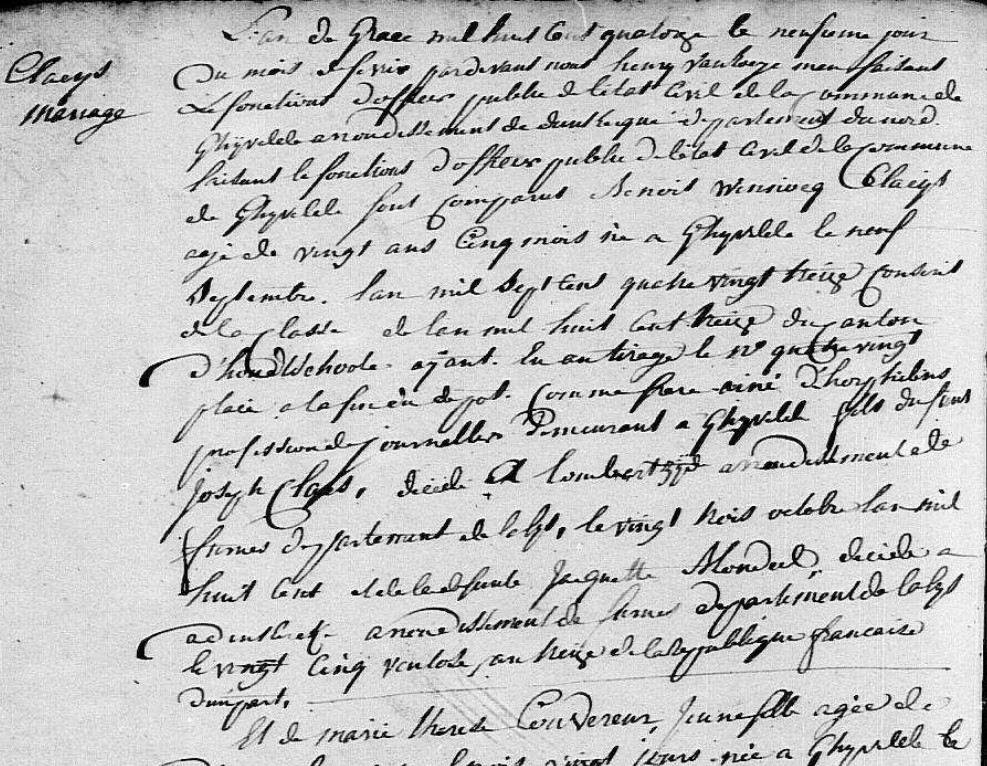 Claeys
Mariage
L'an de Grace mil huit Cent quatorze le neufieme jour
Du mois de fevrier pardevant nous henry Vanhoeye maire faisant
Les fonctions d'officier publicq de l'état Civil de la Commune de
Ghyvelde arrondissement de dunkerque departement du nord.
faisant les fonctions d'officier publicq de l'état Civil de la Commune
de Ghyvelde sont Comparus Benoit Winnocq Claeys
agé de vingt ans Cinq mois né a Ghyvelde le neuf
Septembre. l'an mil Sept Cent quatre vingt treize Conscrit
de la Classe de l'an mil huit Cent treize du Canton
d'hondschoote. ayant. Eu au tirage le N° quatre vingt
placé a la fin du depot. Comme frere ainé d'horphelins
profession de journallier Demeurant a Ghyvelde fils du feu
Joseph Claeys, décédé a Lombartzyde arrondissement de
furnes departement de la lys, le vingt trois octobre l'an mil
huit Cent et de la defunte Jacquette Blondeel décédé a
adinkerke arrondissement de furnes departement de la lys
le vingt Cinq ventose, an treize de la Republique francaise
d'une part.
Et de marie therese Couvereur, Jeune fille agée de
mois vingt jours née a Ghyvelde le